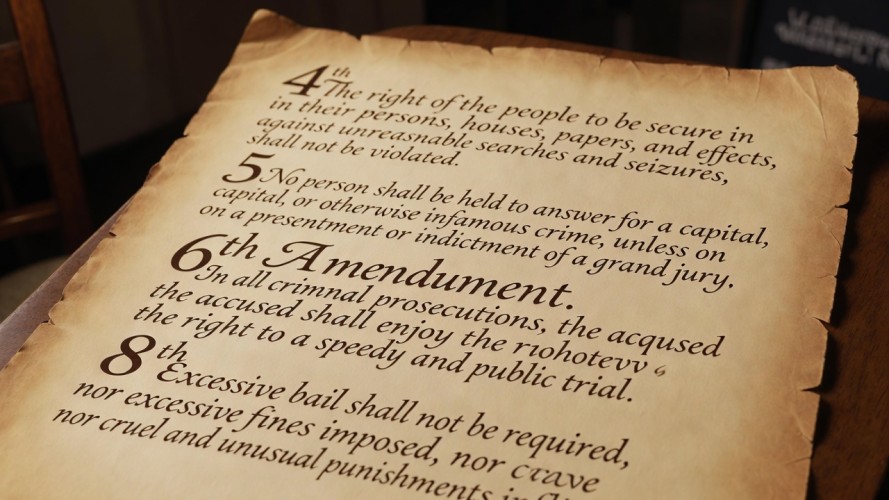 4th
The right of the people to be secure in
in their persons, houses, papers, and effects,
against unreasnable searches and seizures,
shall not be violated.
5 No person shall be held to answer for a capital,
capital, or otherwise infamous crime, unless on
on a presentment or indictment of a grand jury.
6th Amendument.
In all crimnal prosecutions, the acqused
the accused shall enjoy the riohotevv
the right to a speedy and public trial.
8th
Excessive bail shall not be required,
nor excessive fines imposed, nor crave
nor cruel and unusual punishments